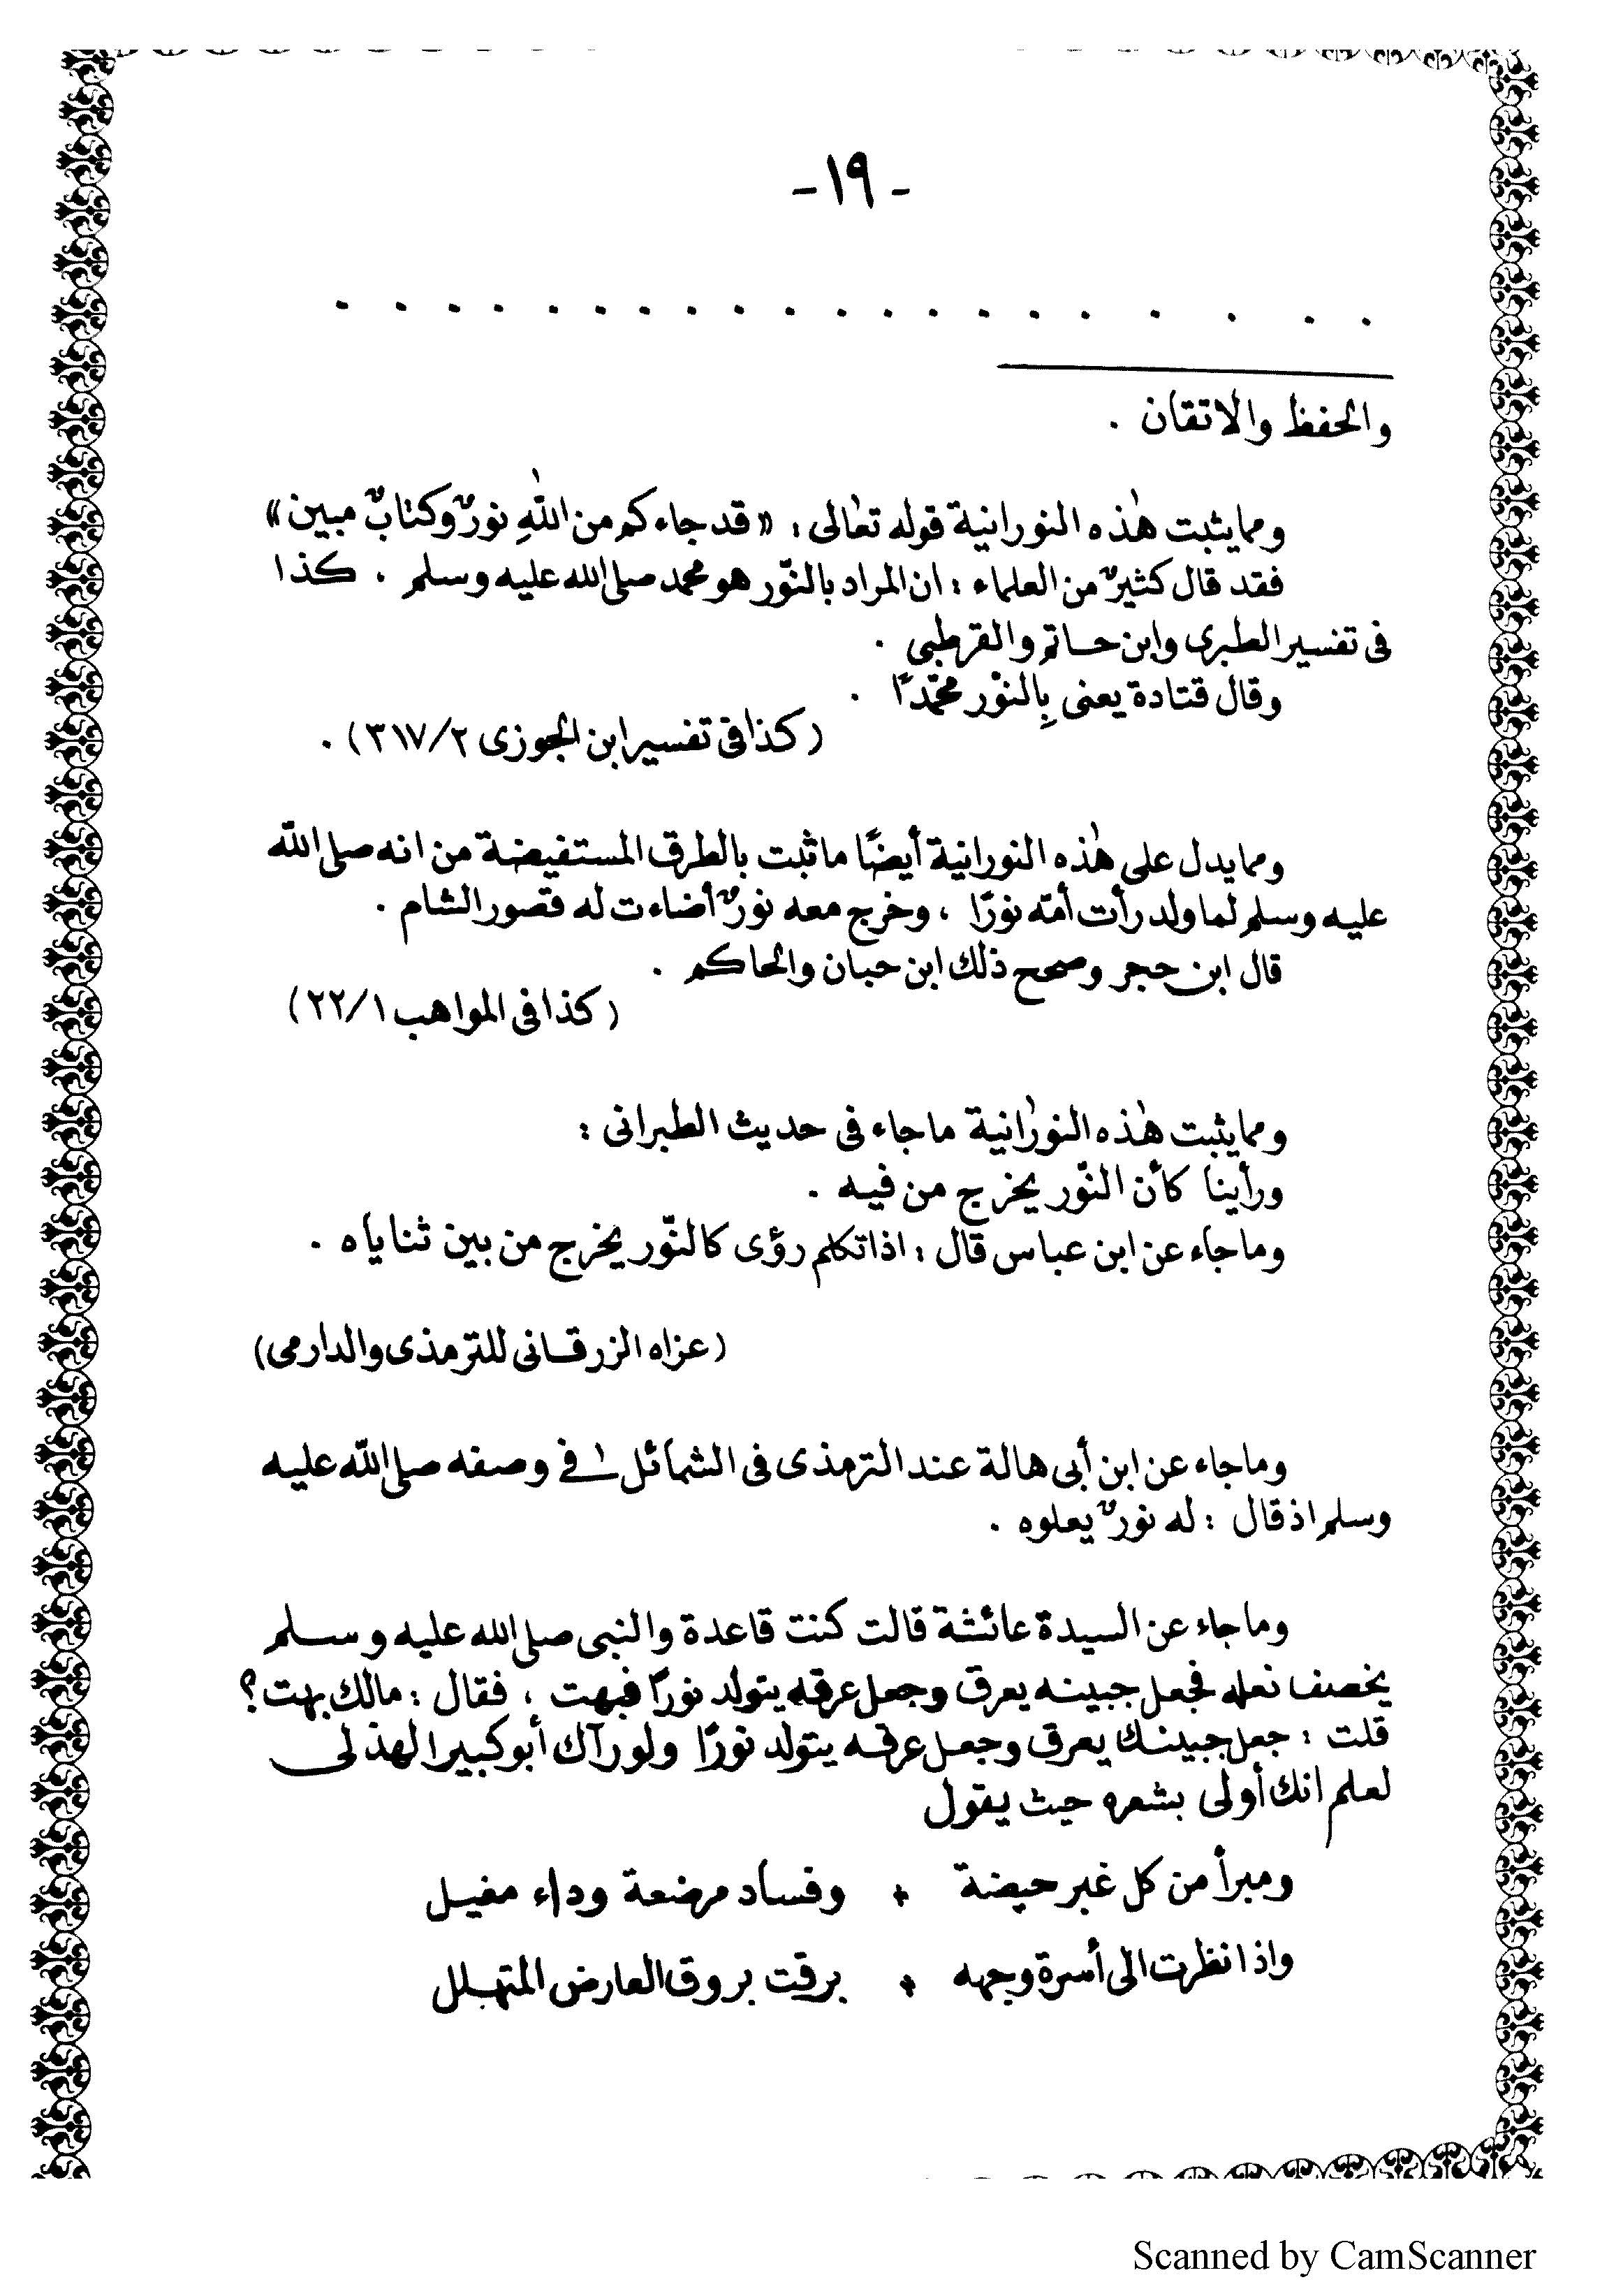 - ١٩ -
. . . . . . . . . . . . . . . . . . . .
والحفظ والاتقان .
ومما يثبت هٰذه النورانية قوله تعٰالى : « قد جاءكم من اللهِ نورٌ وكتابٌ مبين »
فقد قال كثيرٌ من العلماء : ان المراد بالنّور هو محمد صلى الله عليه وسلم . كذا
فى تفسير الطبرى وابن حاتم والقرطبى .
وقال قتادة يعنى بِالنوْر محمّدًا .
( كذا فى تفسير ابن الجوزى ٣١٧/٢ ) .
ومما يدل على هٰذه النورانية أيضًا ما ثبت بالطرق المستفيضة من انه صلى الله
عليه وسلم لما ولد رأت أمّه نورًا ، وخرج معه نورٌ أضاءت له قصور الشام .
قال ابن حجر وصحح ذلك ابن حبان والحاكم .
( كذا فى المواهب ٢٢/١ )
ومما يثبت هٰذه النورٰانية ما جاء فى حديث الطبرانى :
ورأينا كأن النّور يخرج من فيه .
وما جاء عن ابن عباس قال : اذا تكلم رؤى كالنّور يخرج من بين ثناياه .
( عزاه الزرقانى للترمذى والدارمى )
وما جاء عن ابن أبى هالة عند الترمذى فى الشمائل فى وصفه صلى الله عليه
وسلم اذ قال : له نورٌ يعلوه .
وما جاء عن السيدة عائشة قالت كنت قاعدة والنبى صلى الله عليه وسلم
يخصف نعله فجعل جبينه يعرق وجعل عرقه يتولد نورًا فبهت ، فقال : مالك بهت ؟
قلت : جعل جبينك يعرق وجعل عرقه يتولد نورًا ولو رآك أبو كبير الهذلى
لعلم انك أولى بشعره حيث يقول
ومبرأ من كل غبر حيضة + وفساد مرضعة وداء مغيل
واذا نظرت الى أسرة وجهه + برقت بروق العارض المتهلل
Scanned by CamScanner